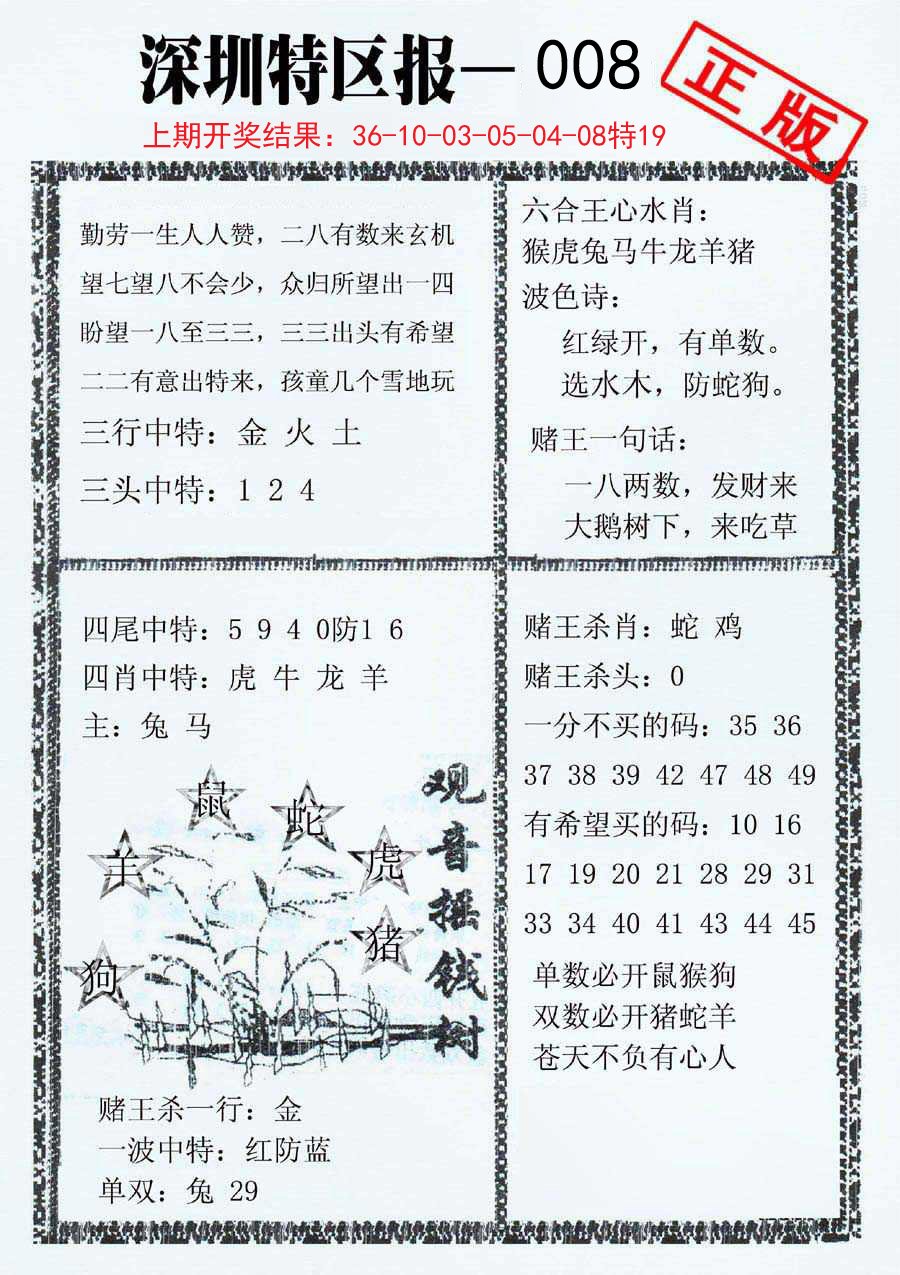 深圳特区报—008
正版
上期开奖结果：36-10-03-05-04-08特19
勤劳一生人人赞，二八有数来玄机
望七望八不会少，众归所望出一四
盼望一八至三三，三三出头有希望
二二有意出特来，孩童几个雪地玩
三行中特：金 火 土
三头中特：1 2 4
六合王心水肖：
猴虎兔马牛龙羊猪
波色诗：
红绿开，有单数。
选水木，防蛇狗。
赌王一句话：
一八两数，发财来
大鹅树下，来吃草
四尾中特：5 9 4 0防1 6
四肖中特：虎 牛 龙 羊
主：兔 马
鼠
蛇
羊
虎
猪
狗
观音摇钱树
赌王杀一行：金
一波中特：红防蓝
单双：兔 29
赌王杀肖：蛇 鸡
赌王杀头：0
一分不买的码：35 36
37 38 39 42 47 48 49
有希望买的码：10 16
17 19 20 21 28 29 31
33 34 40 41 43 44 45
单数必开鼠猴狗
双数必开猪蛇羊
苍天不负有心人